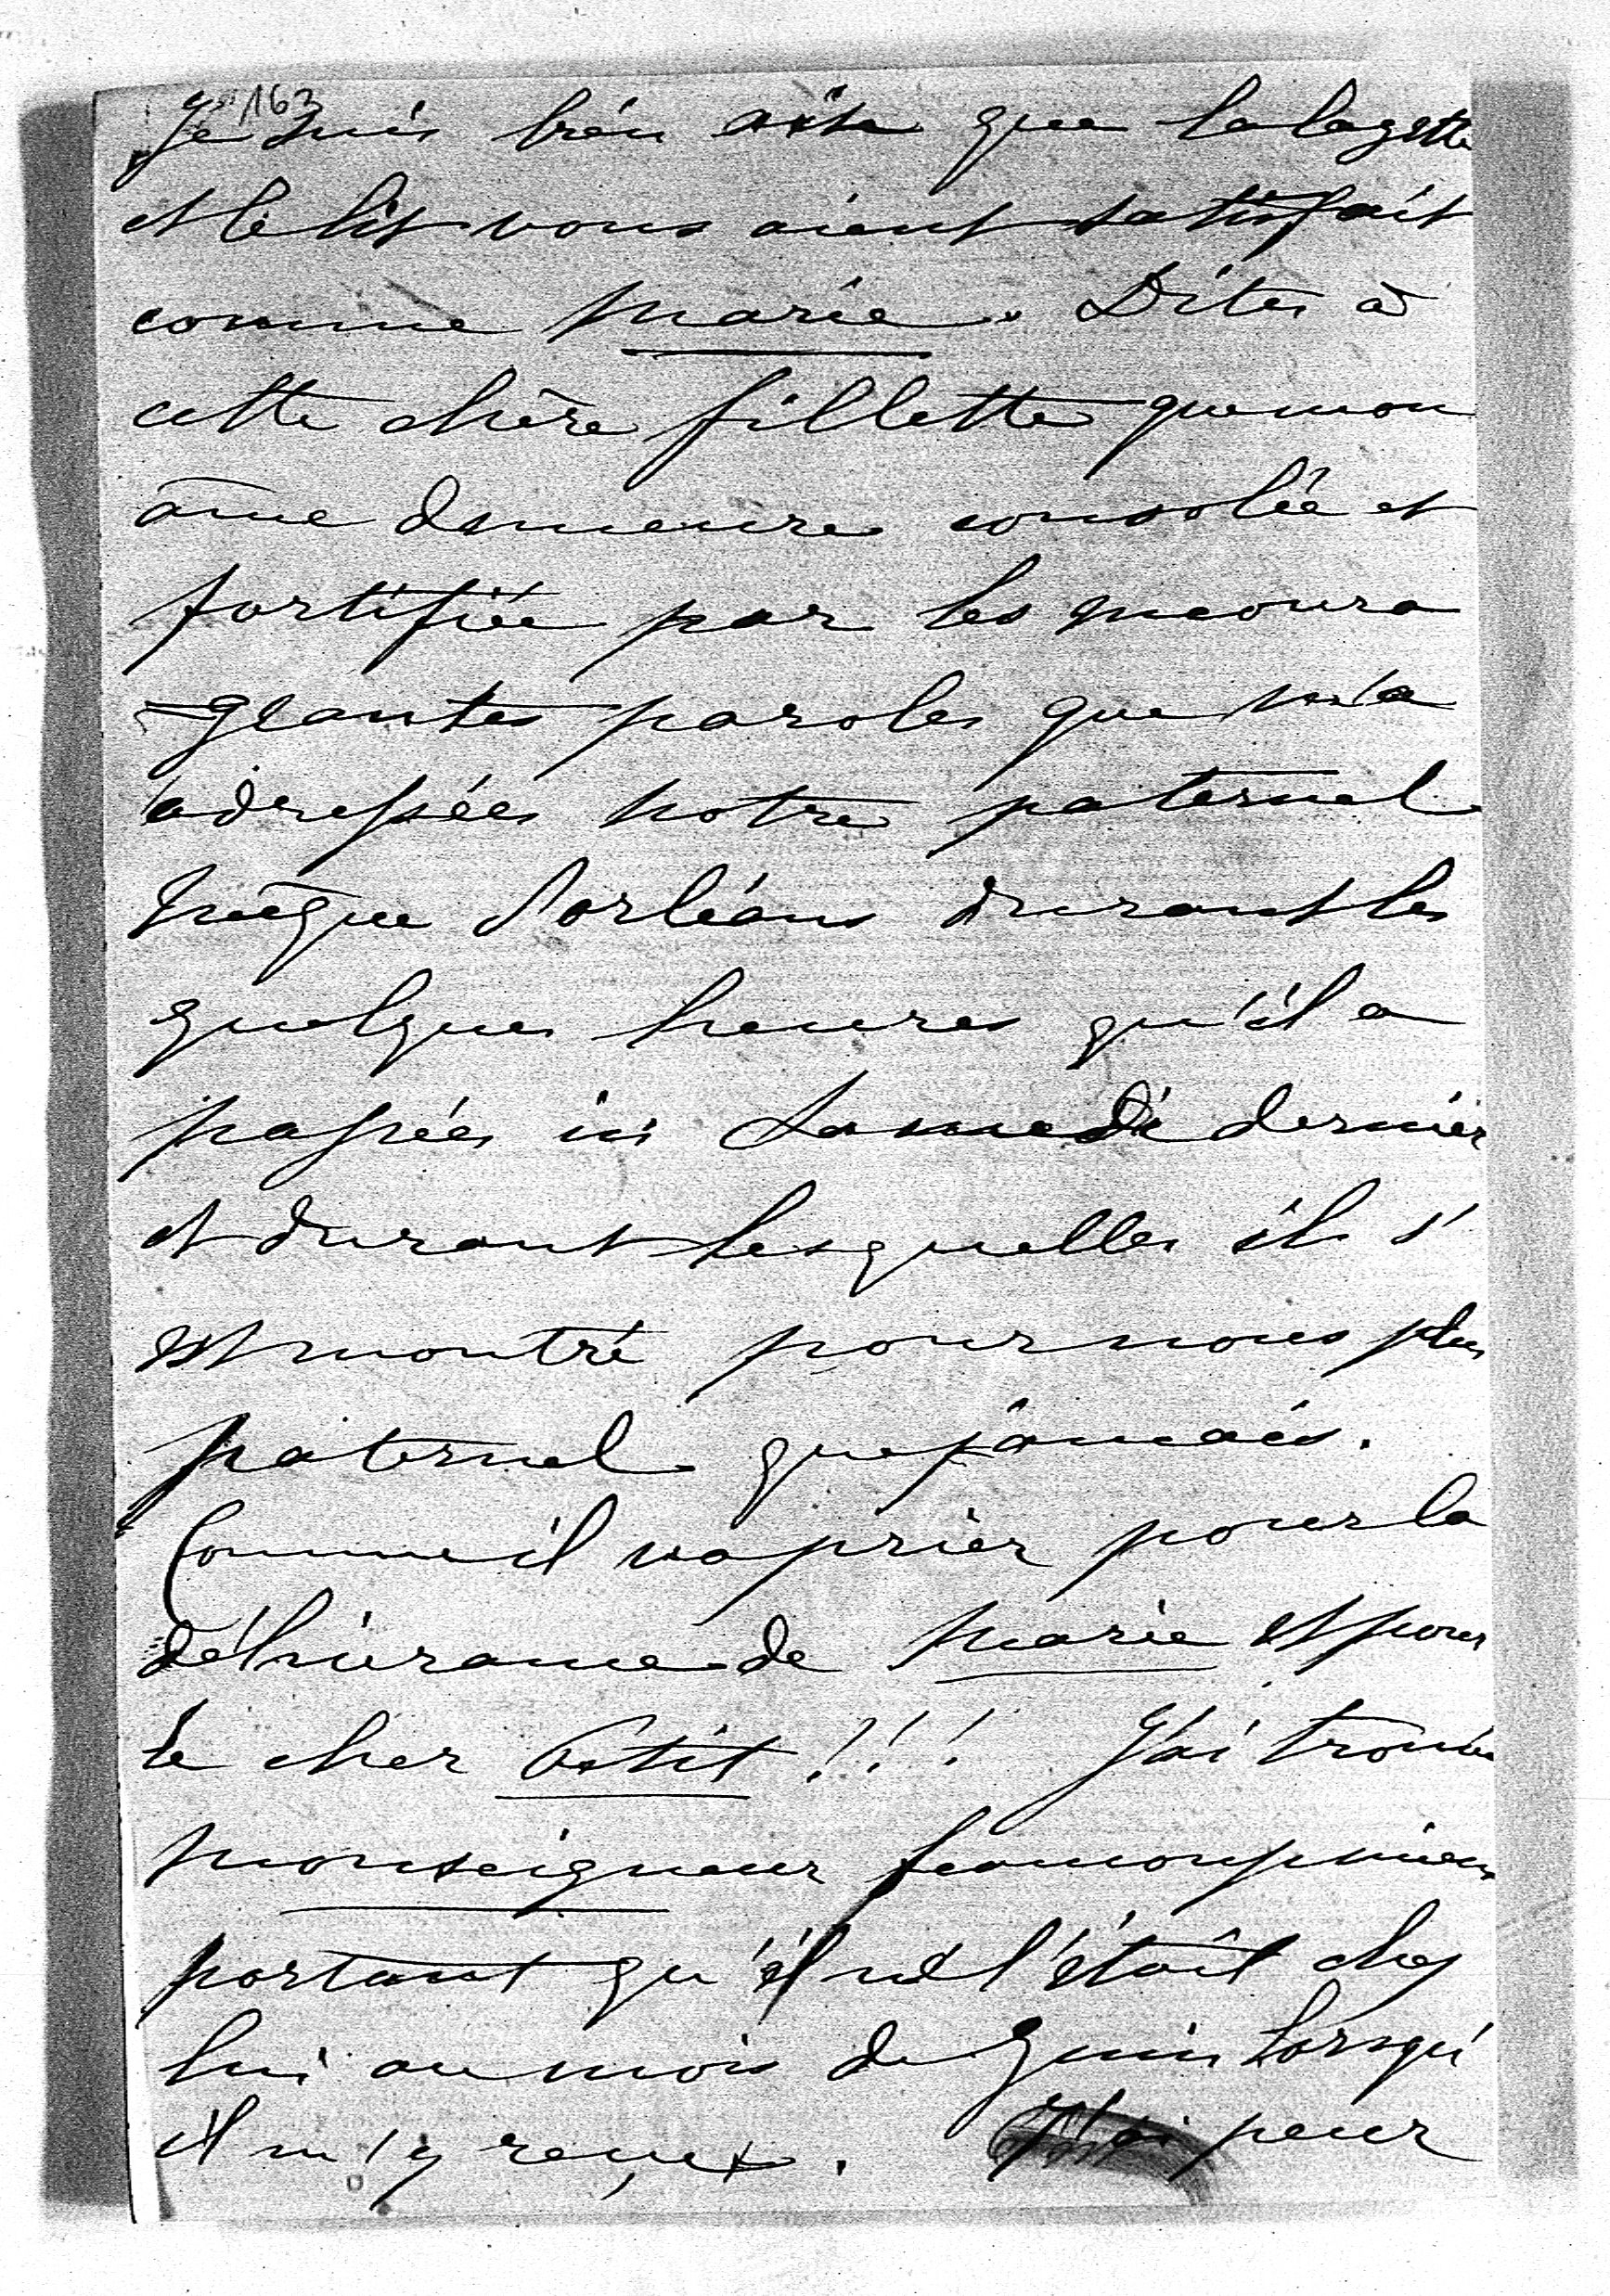 163
Je suis bien aise que la layette
et le lit vous aient satisfait
comme Marie. Dites à
cette chère fillette que mon
âme demeure consolée et
fortifiée par les encoura
-geantes paroles que m'a
adressées notre paternel
Evêque d'orléans durant les
quelques heures qu'il a
passées ici Samedi dernier
et durant lesquelles il s'
est montré pour nous plus
paternel que jamais.
Comme il va prier pour la
délivrance de Marie et pour
le cher Petit!!! J'ai trouvé
Monseigneur beaucoup mieux
portant qu'il ne l'étaît chez
lui au mois de Juin Lorsqu'
il m'y reçut. J'ai peur